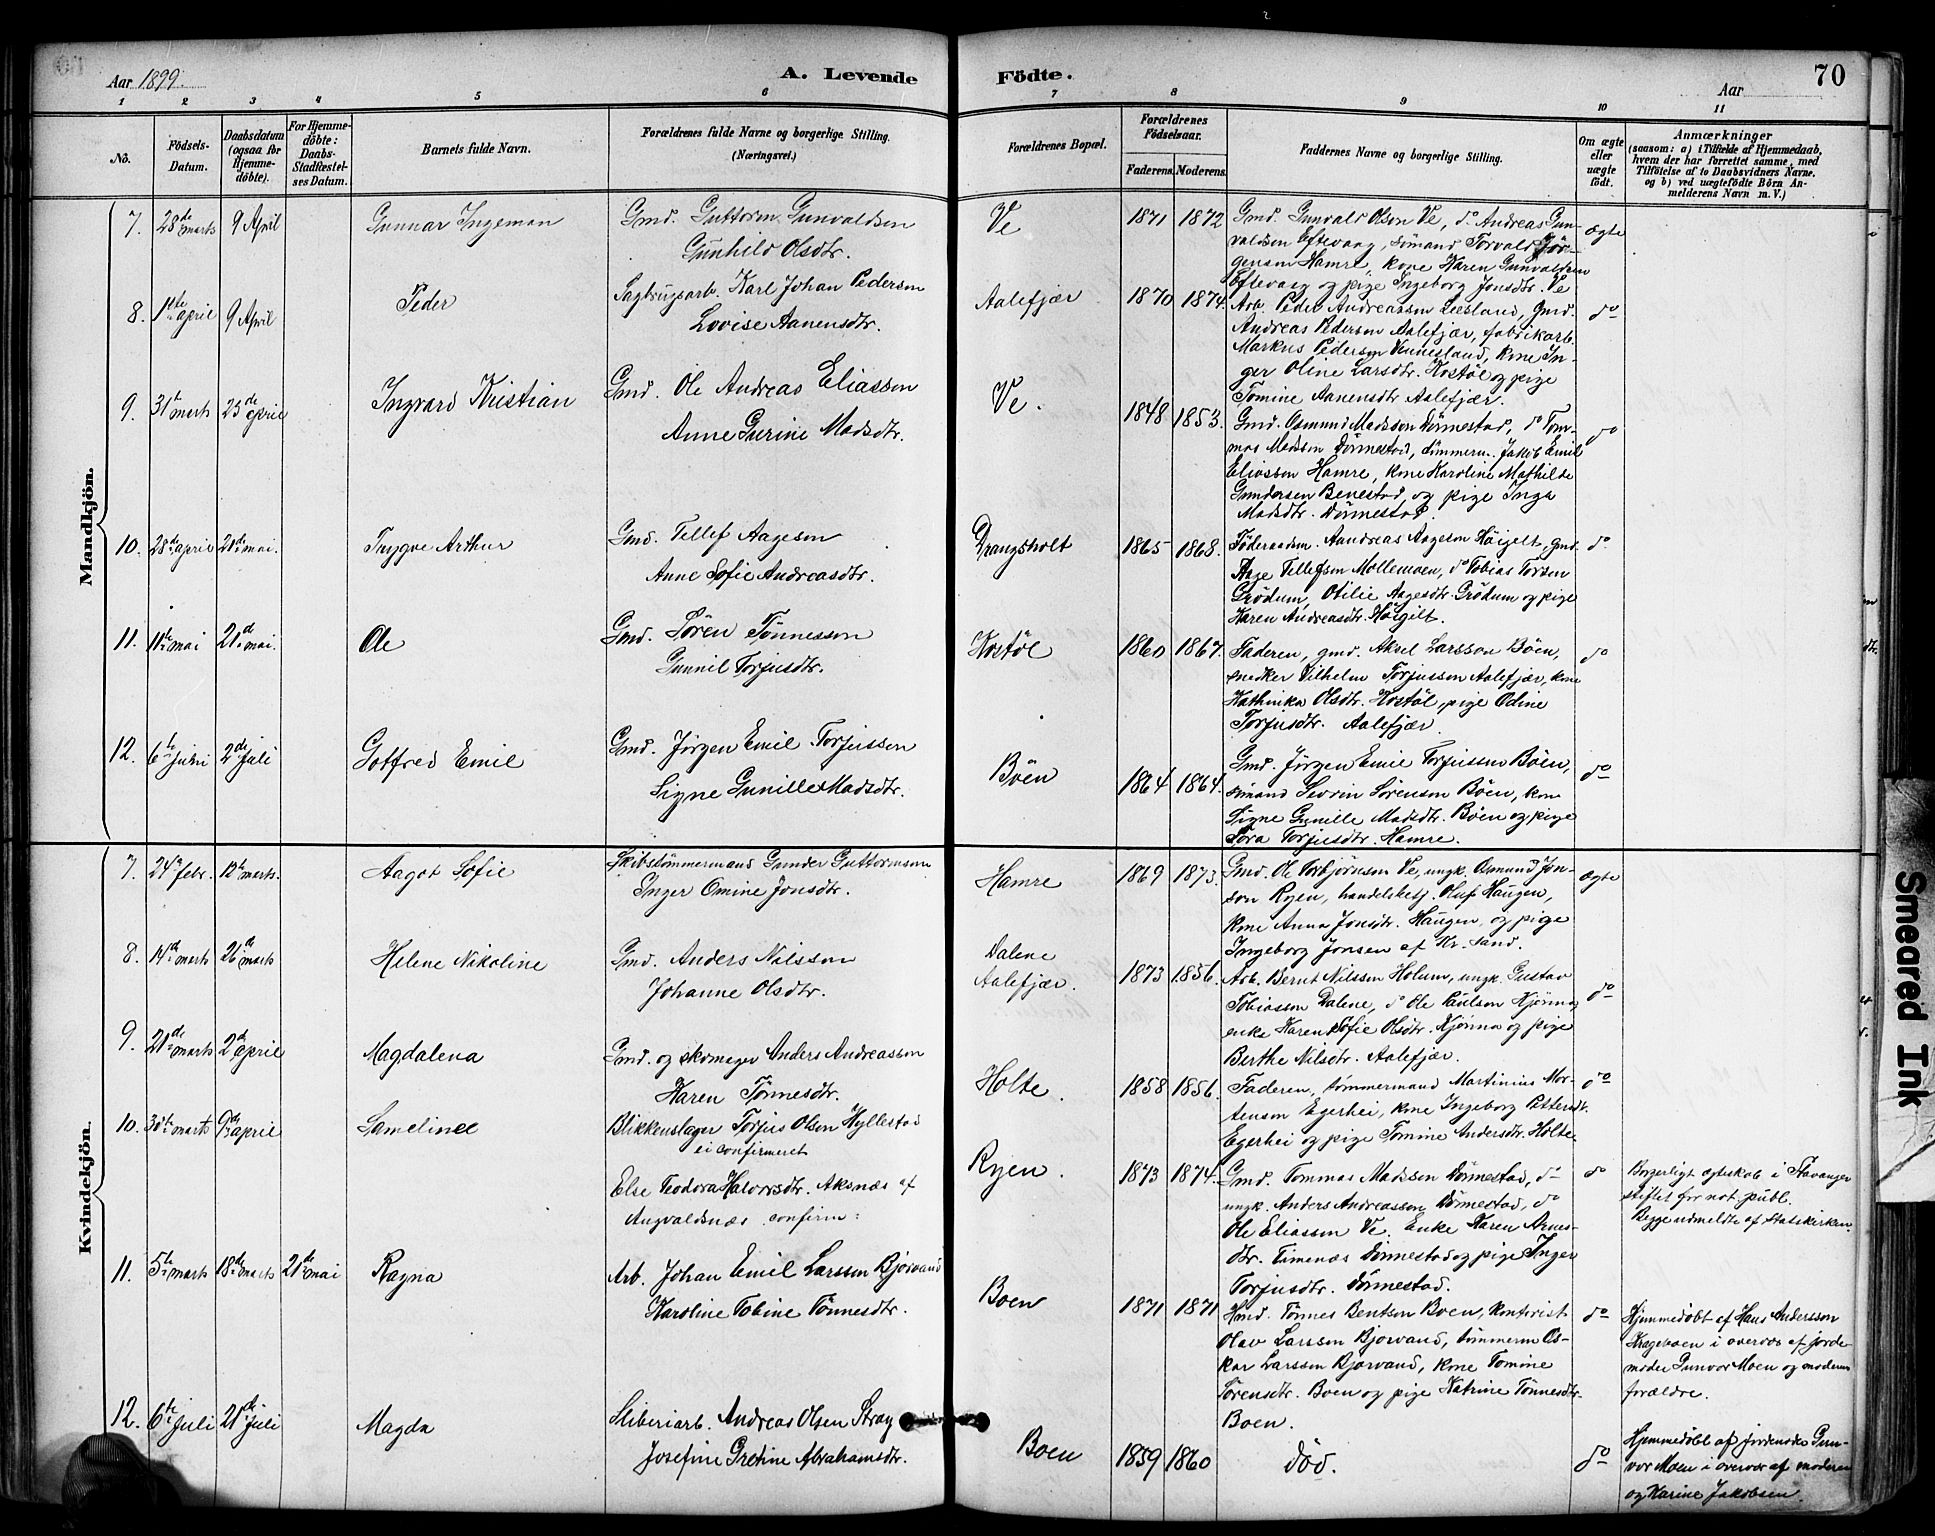 Aar 1899. A. Levende Födte. Aar 70
1 2 3 4 5 6 7 8 9 10 11
No.
Födsels-
Datum.
Daabsdatum
(ogsaa for
Hjemme-
döbte).
For Hjemme-
döbte:
Daabs-
Stadfæstel-
ses Datum.
Barnets fulde Navn.
Forældrenes fulde Navne og borgerlige Stilling.
(Næringsvei.)
Forældrenes Bopæl.
Forældrenes
Födselsaar.
Faderens. Moderens.
Faddernes Navne og borgerlige Stilling.
Om ægte
eller
uægte
födt.
Anmærkninger
(saasom: a) i Tilfælde af Hjemmedaab,
hvem der har forrettet samme, med
Tilföielse af to Daabsvidners Navne,
og b) ved uægtefödte Börn An-
melderens Navn m. V.)
Mandkjön.
7. 28de marts 9 April Gunnar Ingeman Gmd. Guttorm Gunvaldsen
Gunhild Olsdtr.
Ve 1871 1872 Gmd. Gunvald Olson Ve, do Andreas Gun-
valdsen Eftevaag, sömand Torvald Jör-
gensen Hamre, kone Karen Gunvaldsen
Eftevaag og pige Ingeborg Jonsdtr. Ve
ægte
8. 1ste april 9 April Peder Sagbrugsarb. Karl Johan Pedersen
Lovise Aanensdtr.
Aalefjær 1870 1874. Arb. Peder Andreasson Leesland, Gmd.
Andreas Pederson Aalefjær, fabrikarb.
Markus Pederson Vennesland, kone In-
ger Oline Larsdtr. Kostöl og pige
Tomine Aanensdtr Aalefjær.
do
9. 31te marts 23de april Ingvard Kristian Gmd. Ole Andreas Eliasson
Anne Gurine Madsdtr.
Ve. 1848 1853. Gmd. Osmund Madsson Dönnestad, do Tom-
mas Madsson Dönnestad, tömmerm. Jakob Emil
Eliasson Hamre, kone Karoline Mathilde
Gundersen Benestad, og pige Inga
Madsdtr. Dönnestad.
do
10. 28de april 21de mai. Trygve Arthur Gmd. Tellef Aageson
Anne Sofie Andreasdtr.
Drangsholt 1865 1868. Föderaadsm. Aandreas Aageson Höigelt, gmd.
Aage Tellefsen Mollemoen, do Tobias Torsen
Grödum, Otilie Aagesdtr Grödum og pige
Karen Andreasdtr. Höigilt.
do
11. 11te mai 21de mai. Ole Gmd. Sören Tönnesson
Gunnil Torjusdtr.
Kostöl 1860 1867. Faderen, gmd. Aksel Larsson Böen,
snedker Vilhelm Torjusson Aalefjær, kone
Kathinka Olsdtr. Kostöl, pige Odine
Torjusdtr. Aalefjær.
do
12. 6te juni 2de juli Gotfred Emil Gmd. Jörgen Emil Torjusson
Signe Gunille Madsdtr.
Böen 1864 1864. Gmd. Jörgen Emil Torjusson Böen,
sömand Severin Sörenson Böen, kone
Signe Gunille Madsdtr. Böen og pige
Tora Torjusdtr. Hamre.
do
Kvindekjön.
7. 24de febr. 12 marts. Aagot Sofie Skibstömmermand Gunder Guttormson
Inger Omine Jonsdtr.
Hamre 1869 1873. Gmd. Ole Torbjörnson Ve, ungk. Osmund Jon-
son Ryen, handelsbetj. Oluf Haugen,
kone Anna Jonsdtr. Haugen, og pige
Ingeborg Jonsen af Kr. sand.
ægte
8. 14de marts 26de marts Helene Nikoline Gmd. Anders Nilsson
Johanne Olsdtr.
Dalene
Aalefjær. 1873 1856. Arb. Bernt Nilsson Holum, ungk. Gustav
Tobiassen Dalene, do Ole Paulson Kjönna,
enke Karen Sofie Olsdtr. Kjönna og pige
Berthe Nilsdtr. Aalefjær.
do
9. 21de marts 2de april Magdalena Gmd. og skomager Anders Andreasson
Karen Tönnesdtr.
Holte. 1858 1856. Faderen, tömmermand Martinius Mor-
tenson Egerhei, kone Ingeborg Pettersdt.
Egerhei og pige Tomine Andersdtr. Holte
do
10. 30te marts 9de april Lamelinee Blikkenslager Torjus Olsen Hyllestad
ei confirmeret
Else Teodora Halvorsdtr. Aksnæs af
Augvaldsnæs confirm:
Ryen. 1873 1874. Gmd. Tommas Madsson Dönnestad, do
ungk. Anders Andreasson Dönnestad, do
Ole Eliasson Ve. Enke Karen Arnes-
dtr. Timenæs Dönnestad og pige Inger
Torjusdtr. Dönnestad.
do Borgerligt ægteskab i Stavanger
stiftet for not. publ.
Begge udmeldte af Statskirken.
11. 5te marts 18de marts 21de mai Ragna Arb. Johan Emil Larsson Bjorvand
Karoline Tobine Tönnesdtr.
Boen 1871 1871 Hmd. Tönnes Bentson Boen, kontorist
Olav Larsson Bjorvand, tömmerm Os-
kar Larsson Bjorvand, kone Tomine
Sörensdtr. Boen og pige Katrine Tönnesdtr.
Boen.
do Hjemmedöbt af Hans Andersson
Krageboen i overvær af jorde-
moder Gunvor Moen og moderens
forældre.
12. 6te juli 21de juli Magda Sliberiarb. Andreas Olsen Stray
Josefine Gretine Abrahamsdtr.
Boen 1859 1860 död. do Hjemmedöbt af jordemoder Gun-
vor Moen i overvær af moderen
og Karine Jakobsen.
Smeared Ink